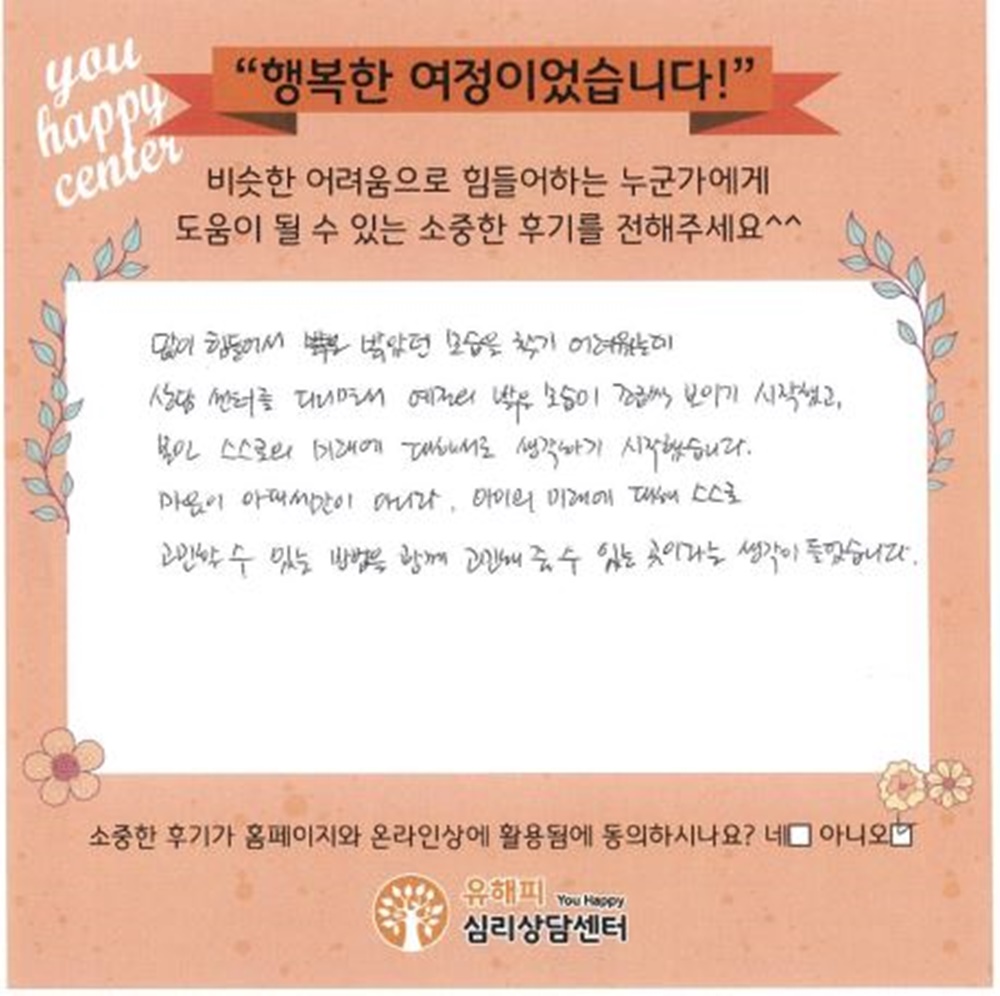 you
happy
center
“행복한 여정이었습니다!”
비슷한 어려움으로 힘들어하는 누군가에게
도움이 될 수 있는 소중한 후기를 전해주세요^^
많이 힘들어서 밝았던 모습을 찾기 어려웠는데
상담 센터를 다니면서 예전의 밝은 모습이 조금씩 보이기 시작했고,
본인 스스로의 미래에 대해서도 생각하기 시작했습니다.
마음이 아픈 아니라, 아이의 미래에 대해 스스로
고민할 수 있는 방법을 함께 고민해 줄 수 있는 곳이라는 생각이 들었습니다.
소중한 후기가 홈페이지와 온라인상에 활용됨에 동의하시나요? 네□ 아니오☑
유해피 You Happy
심리상담센터